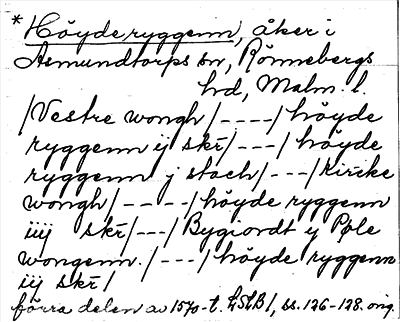 * Höyderyggenn, åker i
Asmundtorps sn, Rönnebergs
hd, Malm. l.
/Vestre wongh/----/höyde
ryggenn ij skr̄/---/ höyde
ryggenn j stoch/---/Kircke
wongh/----/höyde ryggenn
iiij skr̄/---/Bygiordt y Pøle
wongenn./---/höyde ryggenn
iij skr̄/
förra delen av 1570-t. LStB1, ss. 126-128. orig.